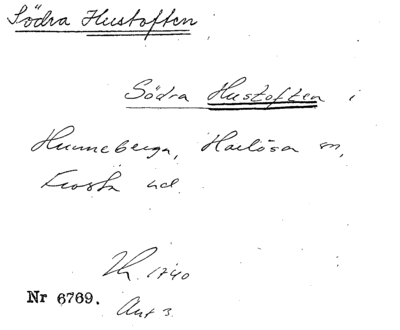 Södra Hustoften
Södra Hustoften i
Hunneberga, Harlösa sn,
Frosta hd.
Lh. 1740
Nr 6769.
Akt 3